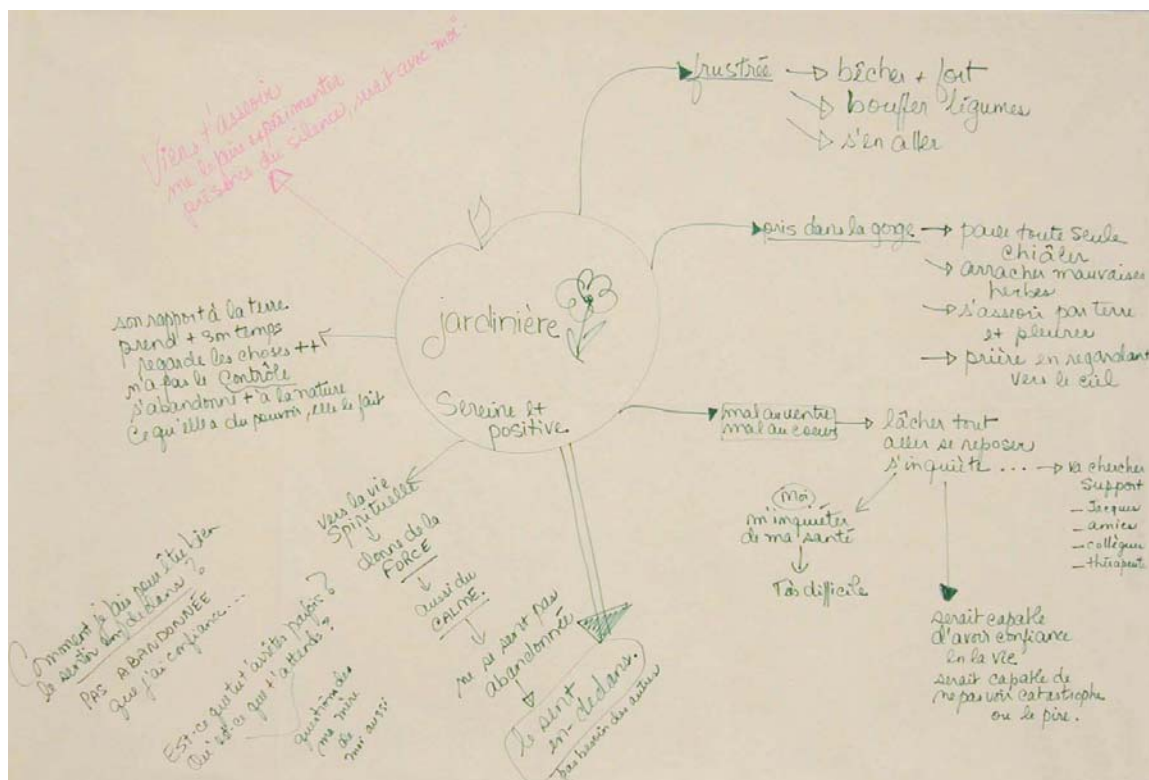 Viens t'asseoir
me le faire expérimenter
présence du silence, serait avec moi
frustrée → bêcher + fort
→ bouffer légumes
→ s'en aller
jardinière
Sereine et
positive
pris dans la gorge → parle toute seule
chiâler
→ arracher mauvaises
herbes
→ s'asseoir par terre
et pleurer
→ prière en regardant
vers le ciel
son rapport à la terre
prend + son temps
regarde les choses ++
n'a pas le contrôle
s'abandonne + à la nature
Ce qu'elle a du pouvoir, elle le fait
mal au ventre
mal au coeur → lâcher tout
aller se reposer
s'inquiète ... → va chercher
support
– Jacques
– amies
– collègues
– thérapeute
moi
m'inquiéter
de ma santé
Très difficile
serait capable
d'avoir confiance
en la vie
serait capable de
ne pas voir catastrophe
ou le pire.
vers la vie
spirituelle
donne de la
FORCE
aussi du
CALME.
ne se sent pas
abandonnée
le sent
en-dedans.
pas besoin des autres
Comment je fais pour être bien
le sentir en dedans?
PAS ABANDONNÉE
que j'ai confiance...
Est-ce que tu t'arrêtes parfois?
Qu'est-ce que t'attends?
question des
ma mère
de
moi aussi